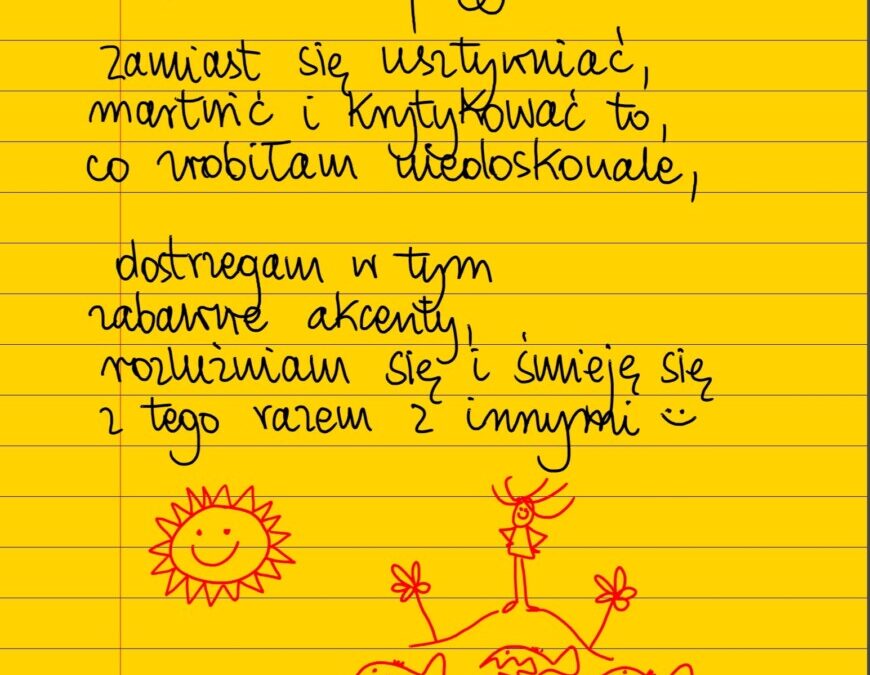 zamiast się usztywniać,
martwić i krytykować to,
co zrobiłam niedoskonale,
dostrzegam w tym
zabawne akcenty,
rozluźniam się i śmieję się
z tego razem z innymi